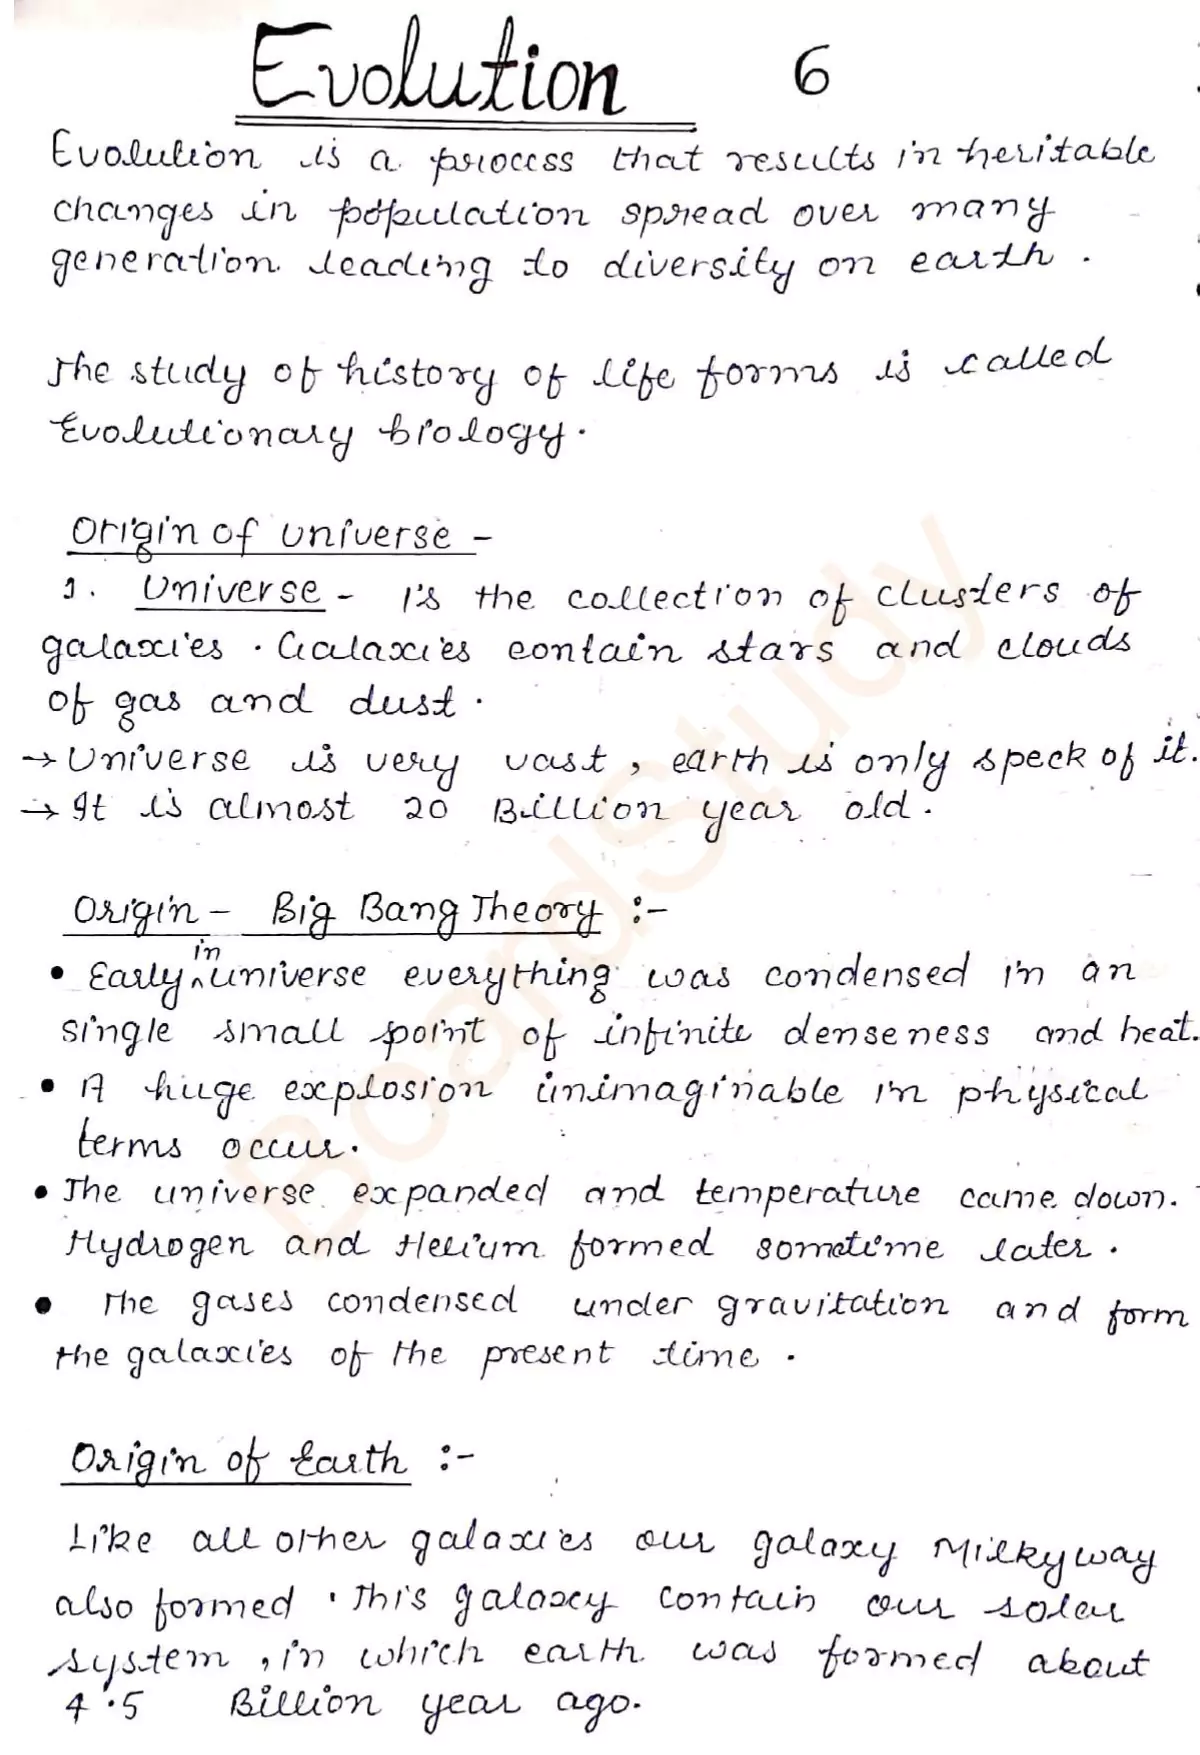 Evolution 6
Evolution is a process that results in heritable
changes in population spread over many
generation leading to diversity on earth.
The study of history of life forms is called
Evolutionary biology.
Origin of universe -
1. Universe - I's the collection of clusters of
galaxies. Galaxies contain stars and clouds
of gas and dust.
→ Universe is very vast, earth is only speck of it.
→ It is almost 20 Billion year old.
Origin - Big Bang Theory :-
• Early in universe everything was condensed in an
single small point of infinite denseness and heat.
• A huge explosion unimaginable in physical
terms occur.
• The universe expanded and temperature came down.
Hydrogen and Helium formed sometime later.
• The gases condensed under gravitation and form
the galaxies of the present time.
Origin of Earth :-
Like all other galaxies our galaxy Milkyway
also formed. This galaxy contain our solar
system, in which earth was formed about
4.5 Billion year ago.
BoardStudy